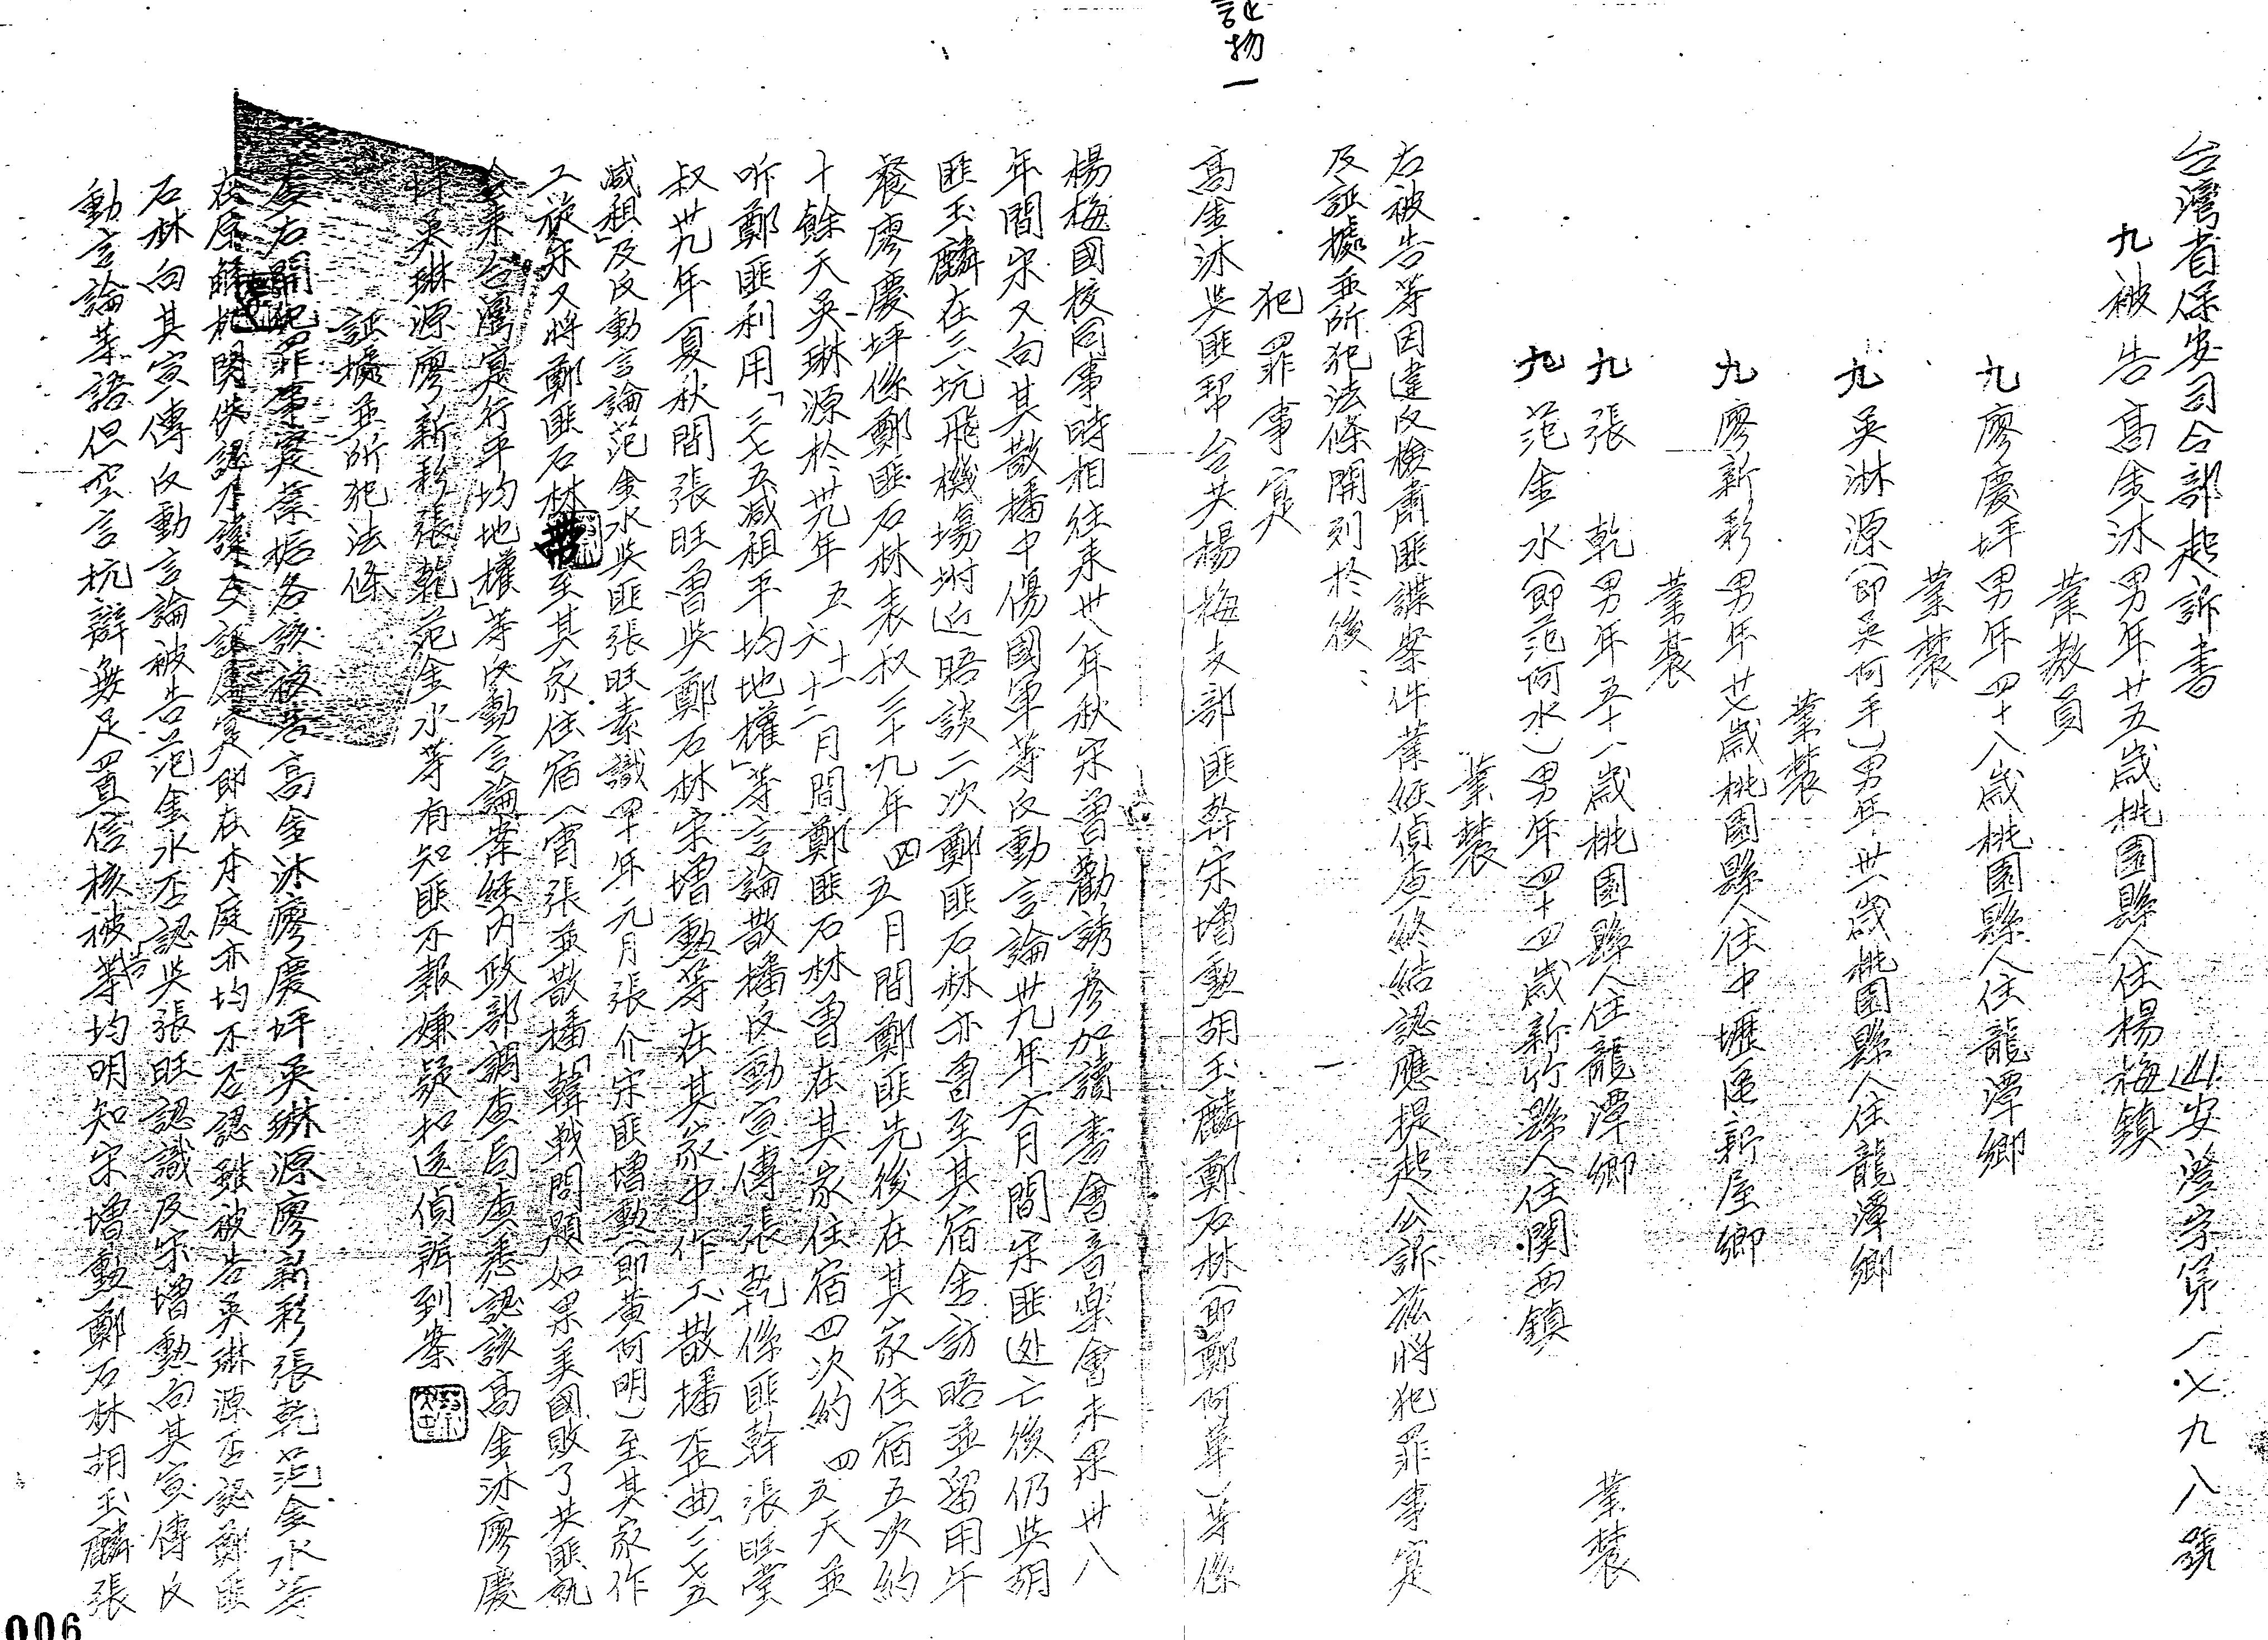 台灣省保安司令部起訴書 (41)安澄字第一七九八號
九被告高金沐男年廿五歲桃園縣人住楊梅鎮
業教員
九 廖慶坪男年四十八歲桃園縣人住龍潭鄉
業農
九 吳淋源(即吳阿平)男年卅一歲桃園縣人住龍潭鄉
業農
九 廖新彩男年廿七歲桃園縣人住中壢區新屋鄉
業農
九 張 乾男年五十一歲桃園縣人住龍潭鄉 業農
九 范金水(即范阿水)男年四十四歲新竹縣人住関西鎮
業農
右被告等因違反檢肅匪諜案件業經偵查終結認應提起公訴茲將犯罪事实
及証據並所犯法條開列於後:
犯罪事实
証物一
高金沐與匪幫台共楊梅支部匪幹宋增勳胡玉麟鄭石林(即鄭阿華)等係
楊梅國校同事時相往來卅八年秋宋曾勸誘參加讀書會音楽會未果卅八
年間宋又向其散播中傷國軍等反動言論卅九年六月間宋匪逃亡後仍與胡
匪玉麟在三坑飛機塲附近晤談二次鄭匪石林亦曾至其宿舍訪晤並留用午
餐廖慶坪係鄭匪石林表叔三十九年四五月間鄭匪先後在其家住宿五次約
十餘天吳琳源於卅九年五六十一十二月間鄭匪石林曾在其家住宿四次約四五天並
听鄭匪利用「三七五減租平均地權」等言論散播反動宣傳張乾係匪幹張旺堂
叔卅九年夏秋間張旺曾與鄭石林宋增勳等在其家中作工散播歪曲「三七五
減租」及反動言論范金水與匪張旺素識四十年元月張介宋匪增勳(即黃阿明)至其家作
工後宋又將鄭匪石林帶至其家住宿一宵張並散播「韓戦問題如果美國敗了共匪就
會來台灣实行平均地權」等反動言論案經内政部調查局查悉認該高金沐廖慶
坪吳琳源廖新彩張乾范金水等有知匪不報嫌疑扣送偵辦到案
証據並所犯法條
查右開犯罪事实業據各該被告高金沐廖慶坪吳琳源廖新彩張乾范金水等
在原解机関供認不諱互証屬实即在本庭亦均不否認雖被告吳琳源否認鄭匪
石林向其宣傳反動言論被告范金水否認與張旺認識及宋增勳向其宣傳反
動言論等語但空言抗辯無足置信核被告等均明知宋增勳鄭石林胡玉麟張
006